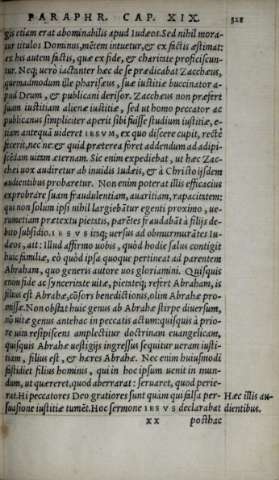 PARAPHR. CAP. XIX. 328
gis etiam erat abominabilis apud Iudæos. Sed nihil mora-
tur titulos Dominus, mētem intuetur, & ex factis æstimat:
ex his autem factis, quæ ex fide, & charitate proficiscun-
tur. Neq; uerò iactanter hæc de se prædicabat Zacchæus,
quemadmodum ille pharisæus, suæ iustitiæ buccinator a-
pud Deum, & publicani derisor. Zacchæus non præfert
suam iustitiam alienæ iustitiæ, sed ut homo peccator ac
publicanus simpliciter aperit sibi fuisse studium iustitiæ, e-
tiam antequā uideret IESVM, ex quo discere cupit, rectè
fecerit, nec ne: & quid præterea foret addendum ad adipi-
scēdam uitam æternam. Sic enim expediebat, ut hæc Zac-
chæi uox audiretur ab inuidis Iudæis, & à Christo ijsdem
audientibus probaretur. Non enim poterat illis efficacius
exprobrare suam fraudulentiam, auaritiam, rapacitatem:
qui non solum ipsi nihil largiebātur egenti proximo, ue-
rumetiam prætextu pietatis, parētes fraudabāt à filijs de-
bito subsidio. IESVS inq; uersus ad obmurmurātes Iu-
dæos, ait: Illud affirmo uobis, quòd hodie salus contigit
huic familiæ, eò quòd ipsa quoque pertineat ad parentem
Abraham, quo generis autore uos gloriamini. Quisquis
enim fide ac synceritate uitæ, pietateq; refert Abraham, is
filius est Abrahæ, cōsors benedictionis, olim Abrahæ pro-
missæ. Non obstat huic genus ab Abrahæ stirpe diuersum,
nō uita genus antehac in peccatis actum: quisquis à prio-
re uita resipiscens amplectitur doctrinam euangelicam,
quisquis Abrahæ uestigijs ingressus sequitur ueram iusti-
tiam, filius est, & hæres Abrahæ. Nec enim huiusmodi
fastidiet filius hominis, qui in hoc ipsum uenit in mun-
dum, ut quæreret, quod aberrarat: seruaret, quod perie-
rat. Hi peccatores Deo gratiores sunt quàm qui falsa per-
suasione iustitiæ tumēt. Hoc sermone IESVS declarabat
Hæc illis au-
dientibus.
XX posthac